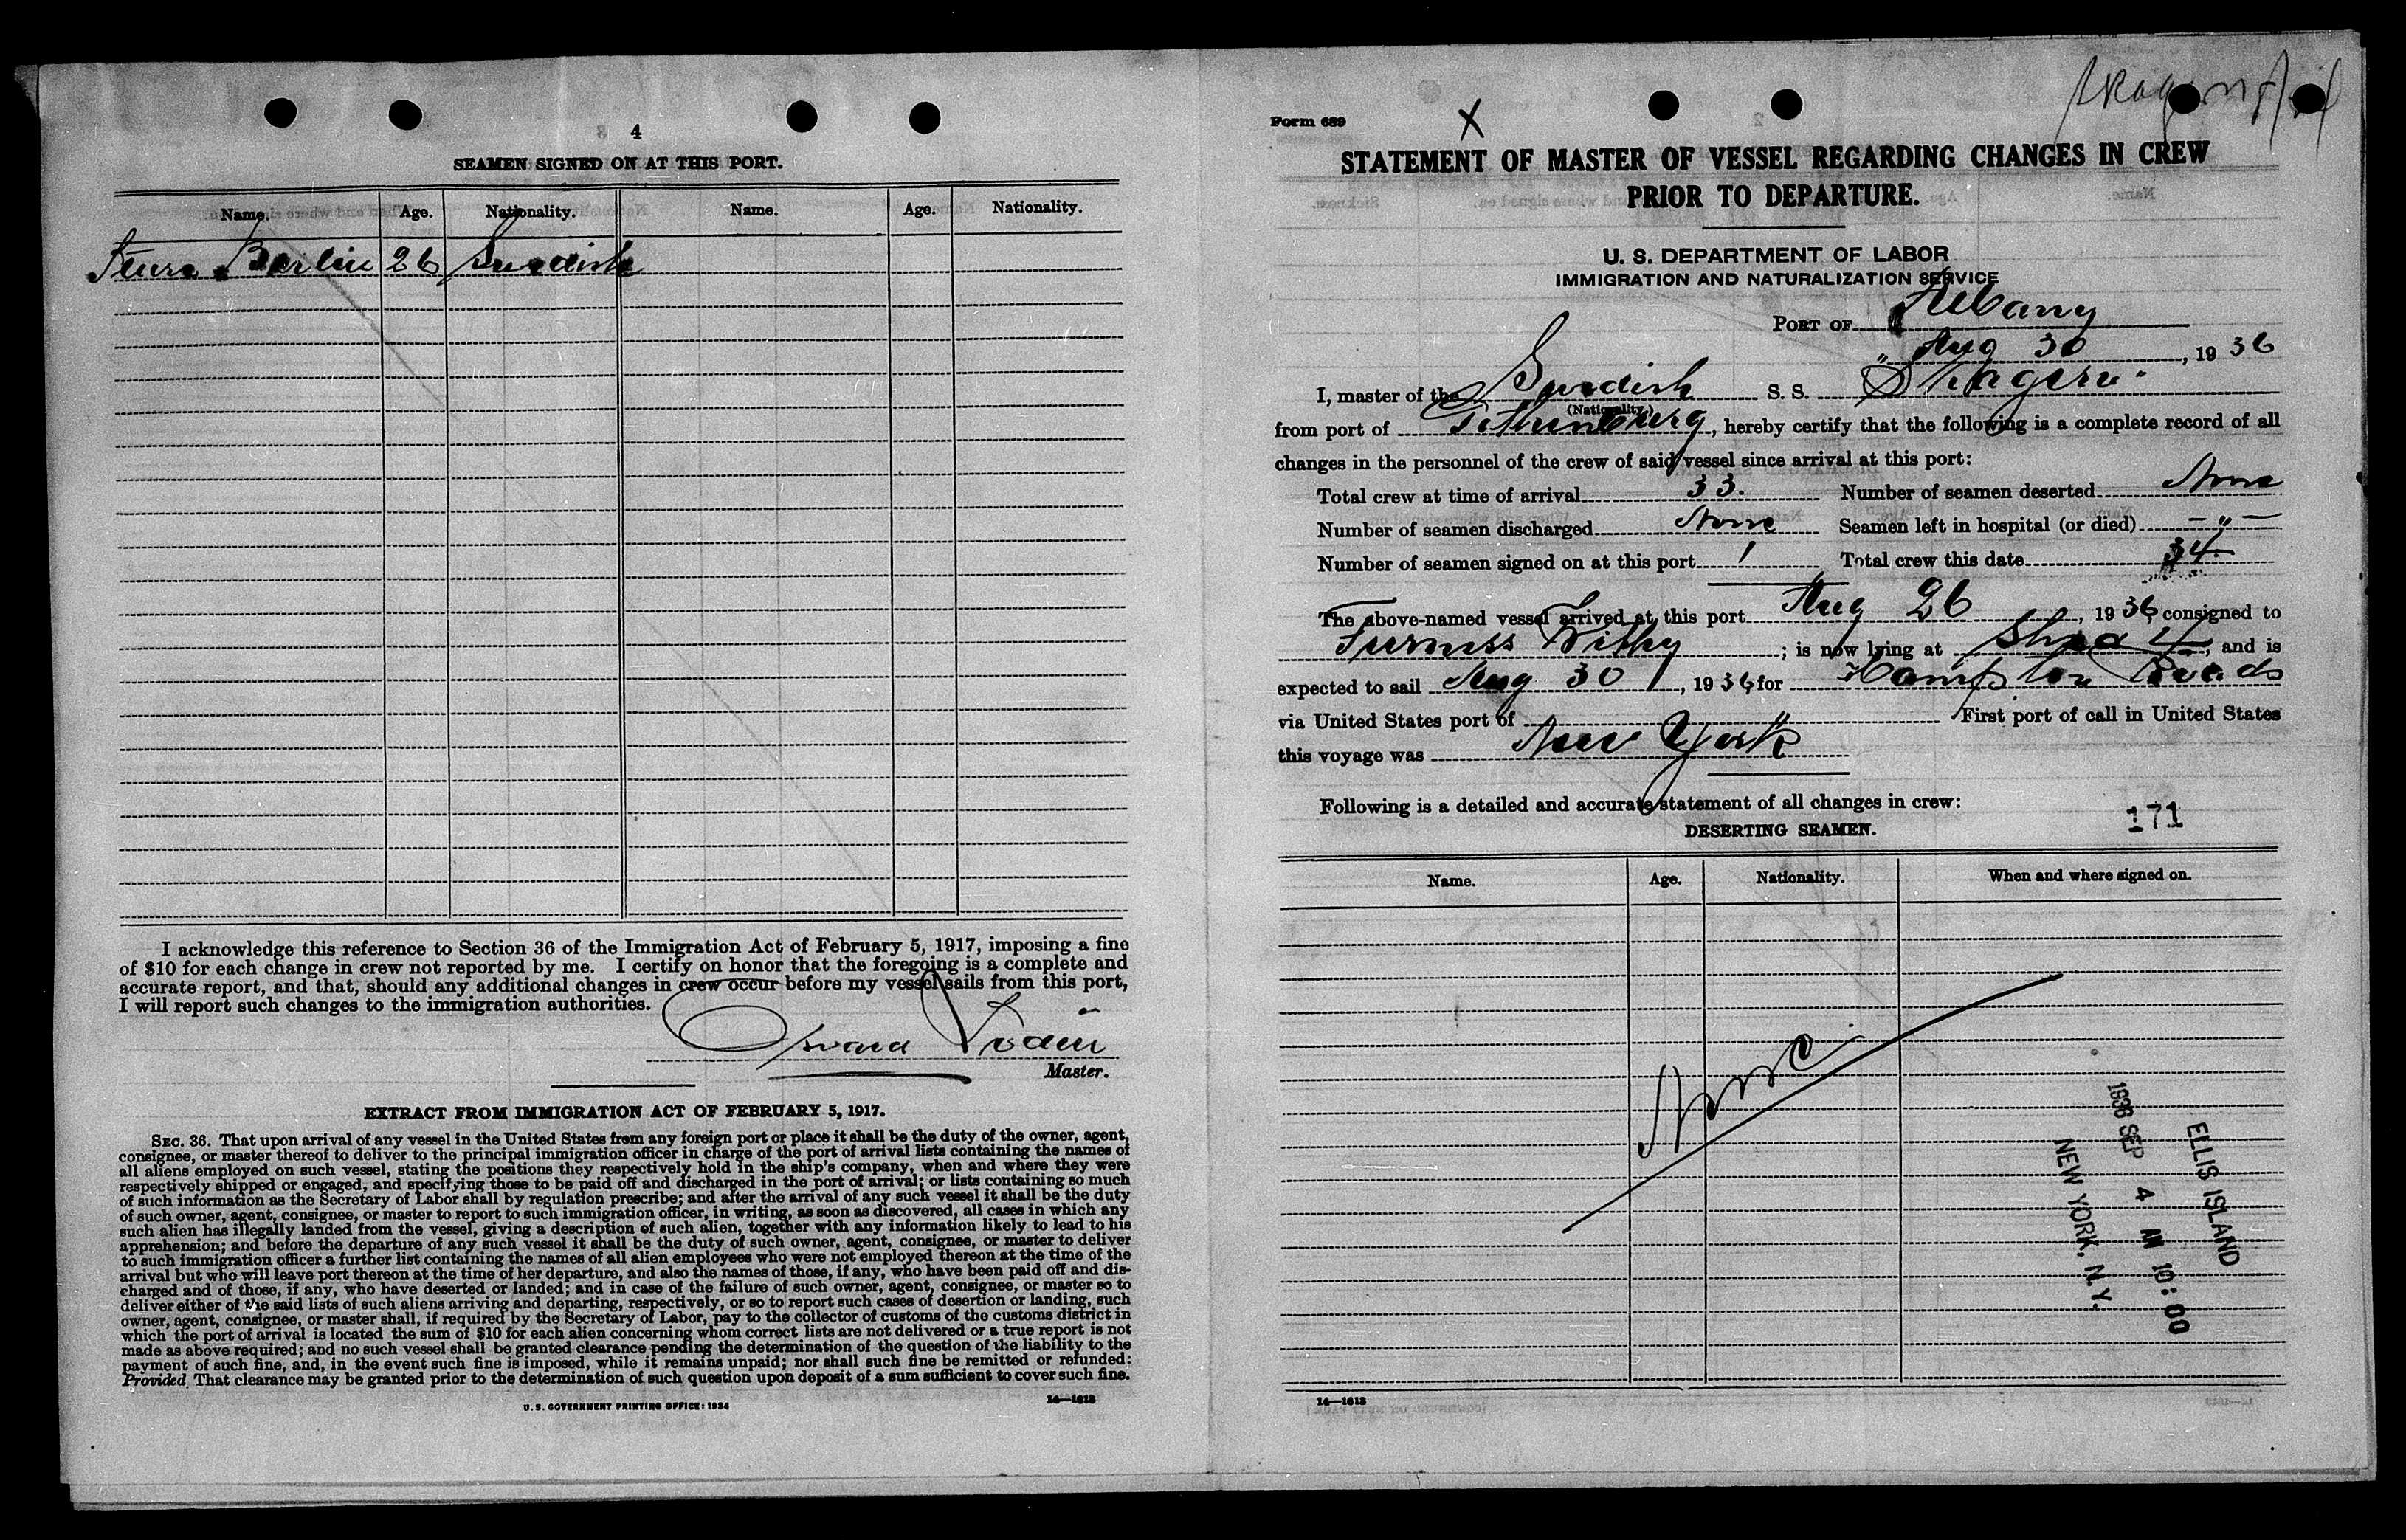 4
SEAMEN SIGNED ON AT THIS PORT.
Name. Age. Nationality. Name. Age. Nationality.
Berlin 26 Swedish
I acknowledge this reference to Section 36 of the Immigration Act of February 5, 1917, imposing a fine
of $10 for each change in crew not reported by me. I certify on honor that the foregoing is a complete and
accurate report, and that, should any additional changes in crew occur before my vessel sails from this port,
I will report such changes to the immigration authorities.
Master.
EXTRACT FROM IMMIGRATION ACT OF FEBRUARY 5, 1917.
SEC. 36. That upon arrival of any vessel in the United States from any foreign port or place it shall be the duty of the owner, agent,
consignee, or master thereof to deliver to the principal immigration officer in charge of the port of arrival lists containing the names of
all aliens employed on such vessel, stating the positions they respectively hold in the ship's company, when and where they were
respectively shipped or engaged, and specifying those to be paid off and discharged in the port of arrival; or lists containing so much
of such information as the Secretary of Labor shall by regulation prescribe; and after the arrival of any such vessel it shall be the duty
of such owner, agent, consignee, or master to report to such immigration officer, in writing, as soon as discovered, all cases in which any
such alien has illegally landed from the vessel, giving a description of such alien, together with any information likely to lead to his
apprehension; and before the departure of any such vessel it shall be the duty of such owner, agent, consignee, or master to deliver
to such immigration officer a further list containing the names of all alien employees who were not employed thereon at the time of the
arrival but who will leave port thereon at the time of her departure, and also the names of those, if any, who have been paid off and dis-
charged and of those, if any, who have deserted or landed; and in case of the failure of such owner, agent, consignee, or master so to
deliver either of the said lists of such aliens arriving and departing, respectively, or so to report such cases of desertion or landing, such
owner, agent, consignee, or master shall, if required by the Secretary of Labor, pay to the collector of customs of the customs district in
which the port of arrival is located the sum of $10 for each alien concerning whom correct lists are not delivered or a true report is not
made as above required; and no such vessel shall be granted clearance pending the determination of the question of the liability to the
payment of such fine, and, in the event such fine is imposed, while it remains unpaid; nor shall such fine be remitted or refunded:
Provided, That clearance may be granted prior to the determination of such question upon deposit of a sum sufficient to cover such fine.
U. S. GOVERNMENT PRINTING OFFICE: 1934 14—1613
Form 689 X
STATEMENT OF MASTER OF VESSEL REGARDING CHANGES IN CREW
PRIOR TO DEPARTURE.
U. S. DEPARTMENT OF LABOR
IMMIGRATION AND NATURALIZATION SERVICE
PORT OF Albany
Aug 30, 1936
I, master of the Swedish S. S. Skagern
(Nationality.)
from port of Gothenburg, hereby certify that the following is a complete record of all
changes in the personnel of the crew of said vessel since arrival at this port:
Total crew at time of arrival 33. Number of seamen deserted None
Number of seamen discharged None Seamen left in hospital (or died) — " —
Number of seamen signed on at this port 1 Total crew this date 34
The above-named vessel arrived at this port Aug 26, 1936, consigned to
Furness Withy; is now lying at Shed 4, and is
expected to sail Aug 30, 1936 for Hampton Roads
via United States port of First port of call in United States
this voyage was New York
Following is a detailed and accurate statement of all changes in crew:
171
DESERTING SEAMEN.
Name. Age. Nationality. When and where signed on.
None
ELLIS ISLAND
1936 SEP 4 AM 10:00
NEW YORK, N.Y.
14—1613